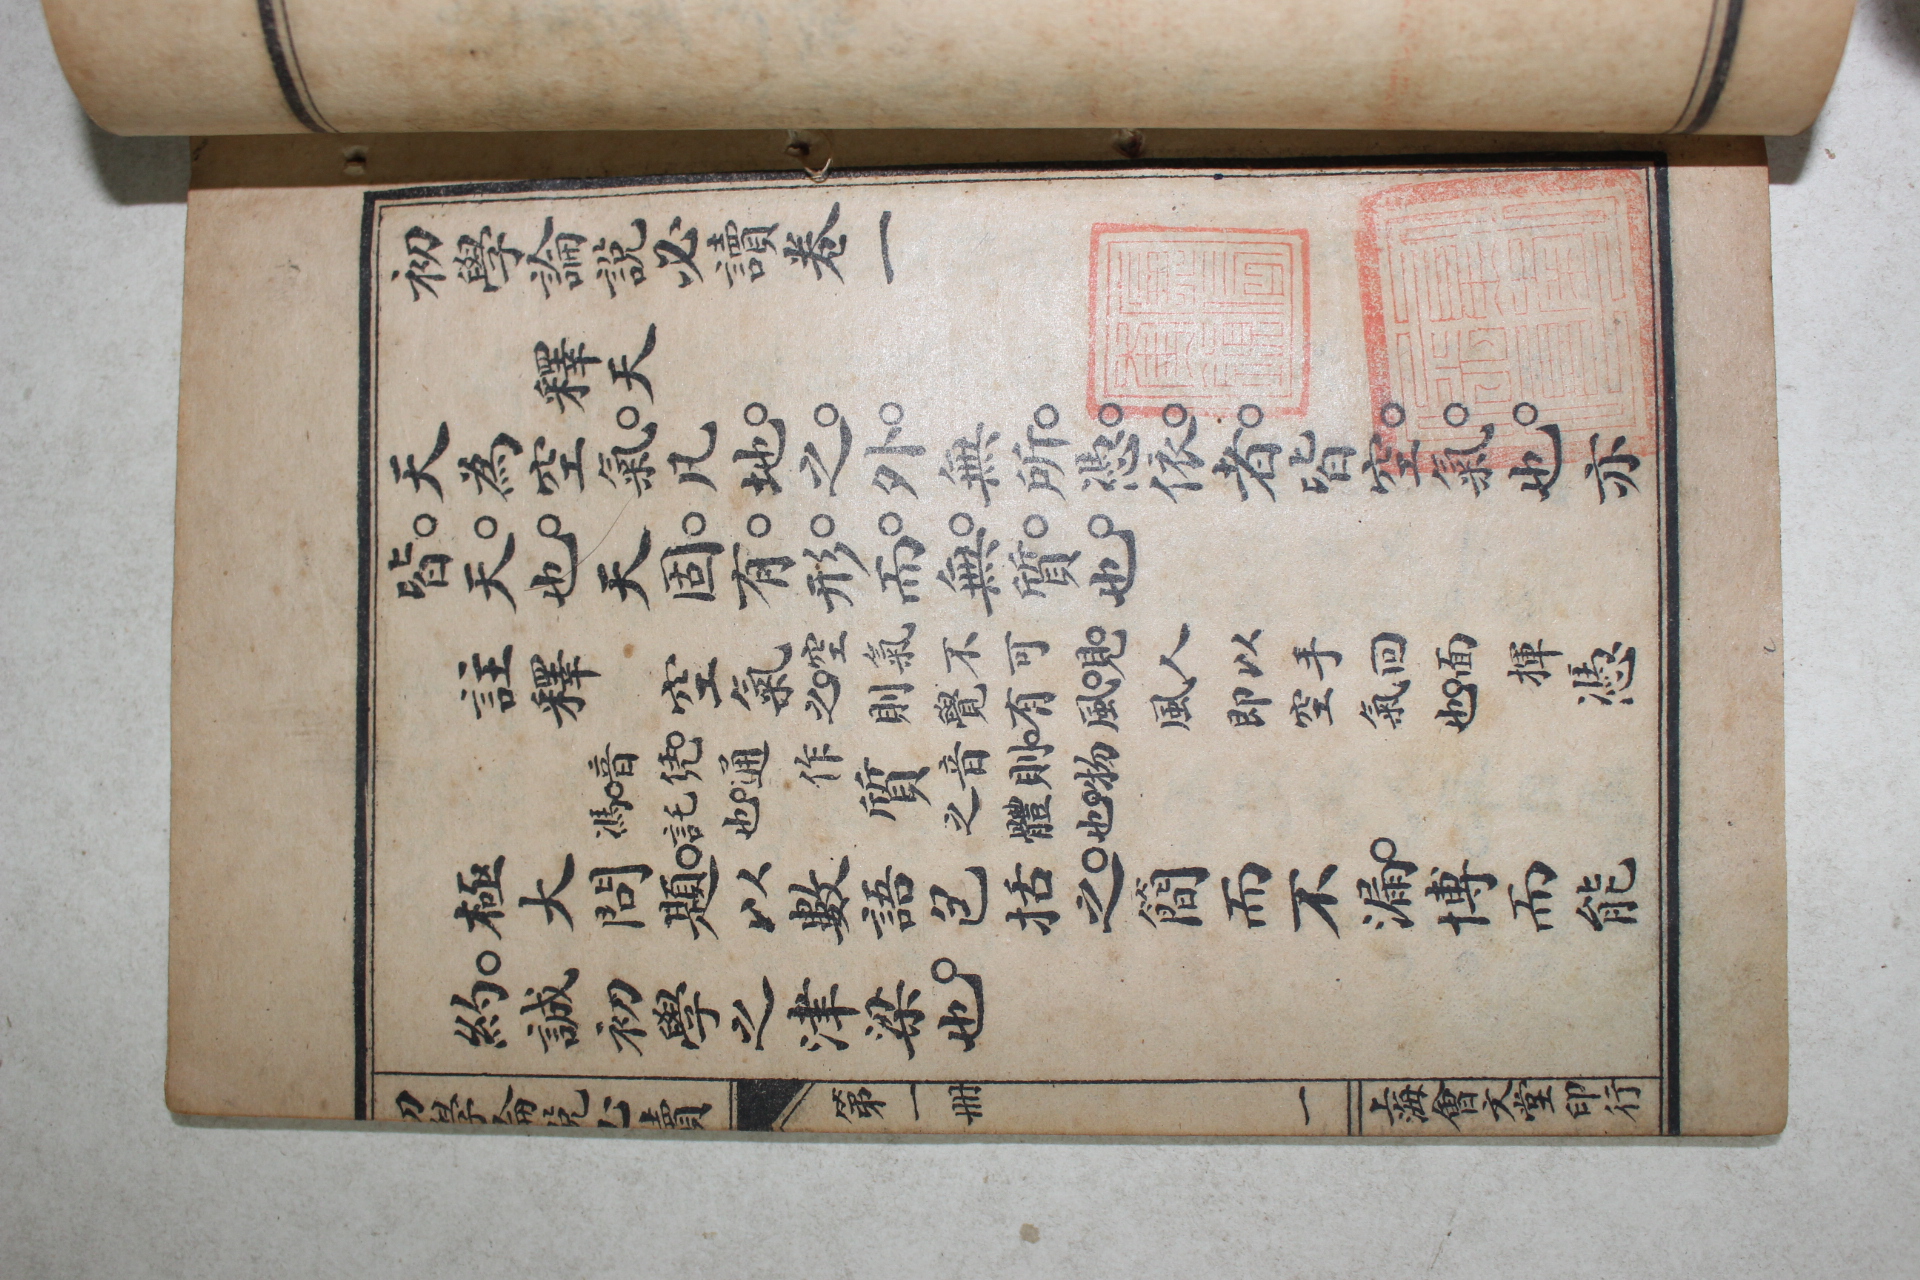 初學論說必讀卷一
釋天
天為空氣凡地之外無所憑依者皆空氣也亦
皆天也天固有形而無質也
註釋 空氣 空氣不可見人以手回面揮之則覺有風風即空氣也 憑
音凭通作馮託也 質 音則物之體也
極大問題以數語包括之簡而不漏博而能
約誠初學之津梁也
初學論說必讀 第一冊 一 上海會文堂印行